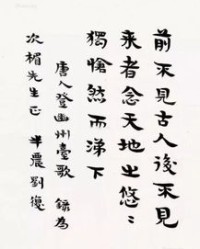 前不見古人後不見
來者念天地之悠〻
獨愴然而涕下
唐人登幽州臺歌 錄為
次楣先生正 半農劉復